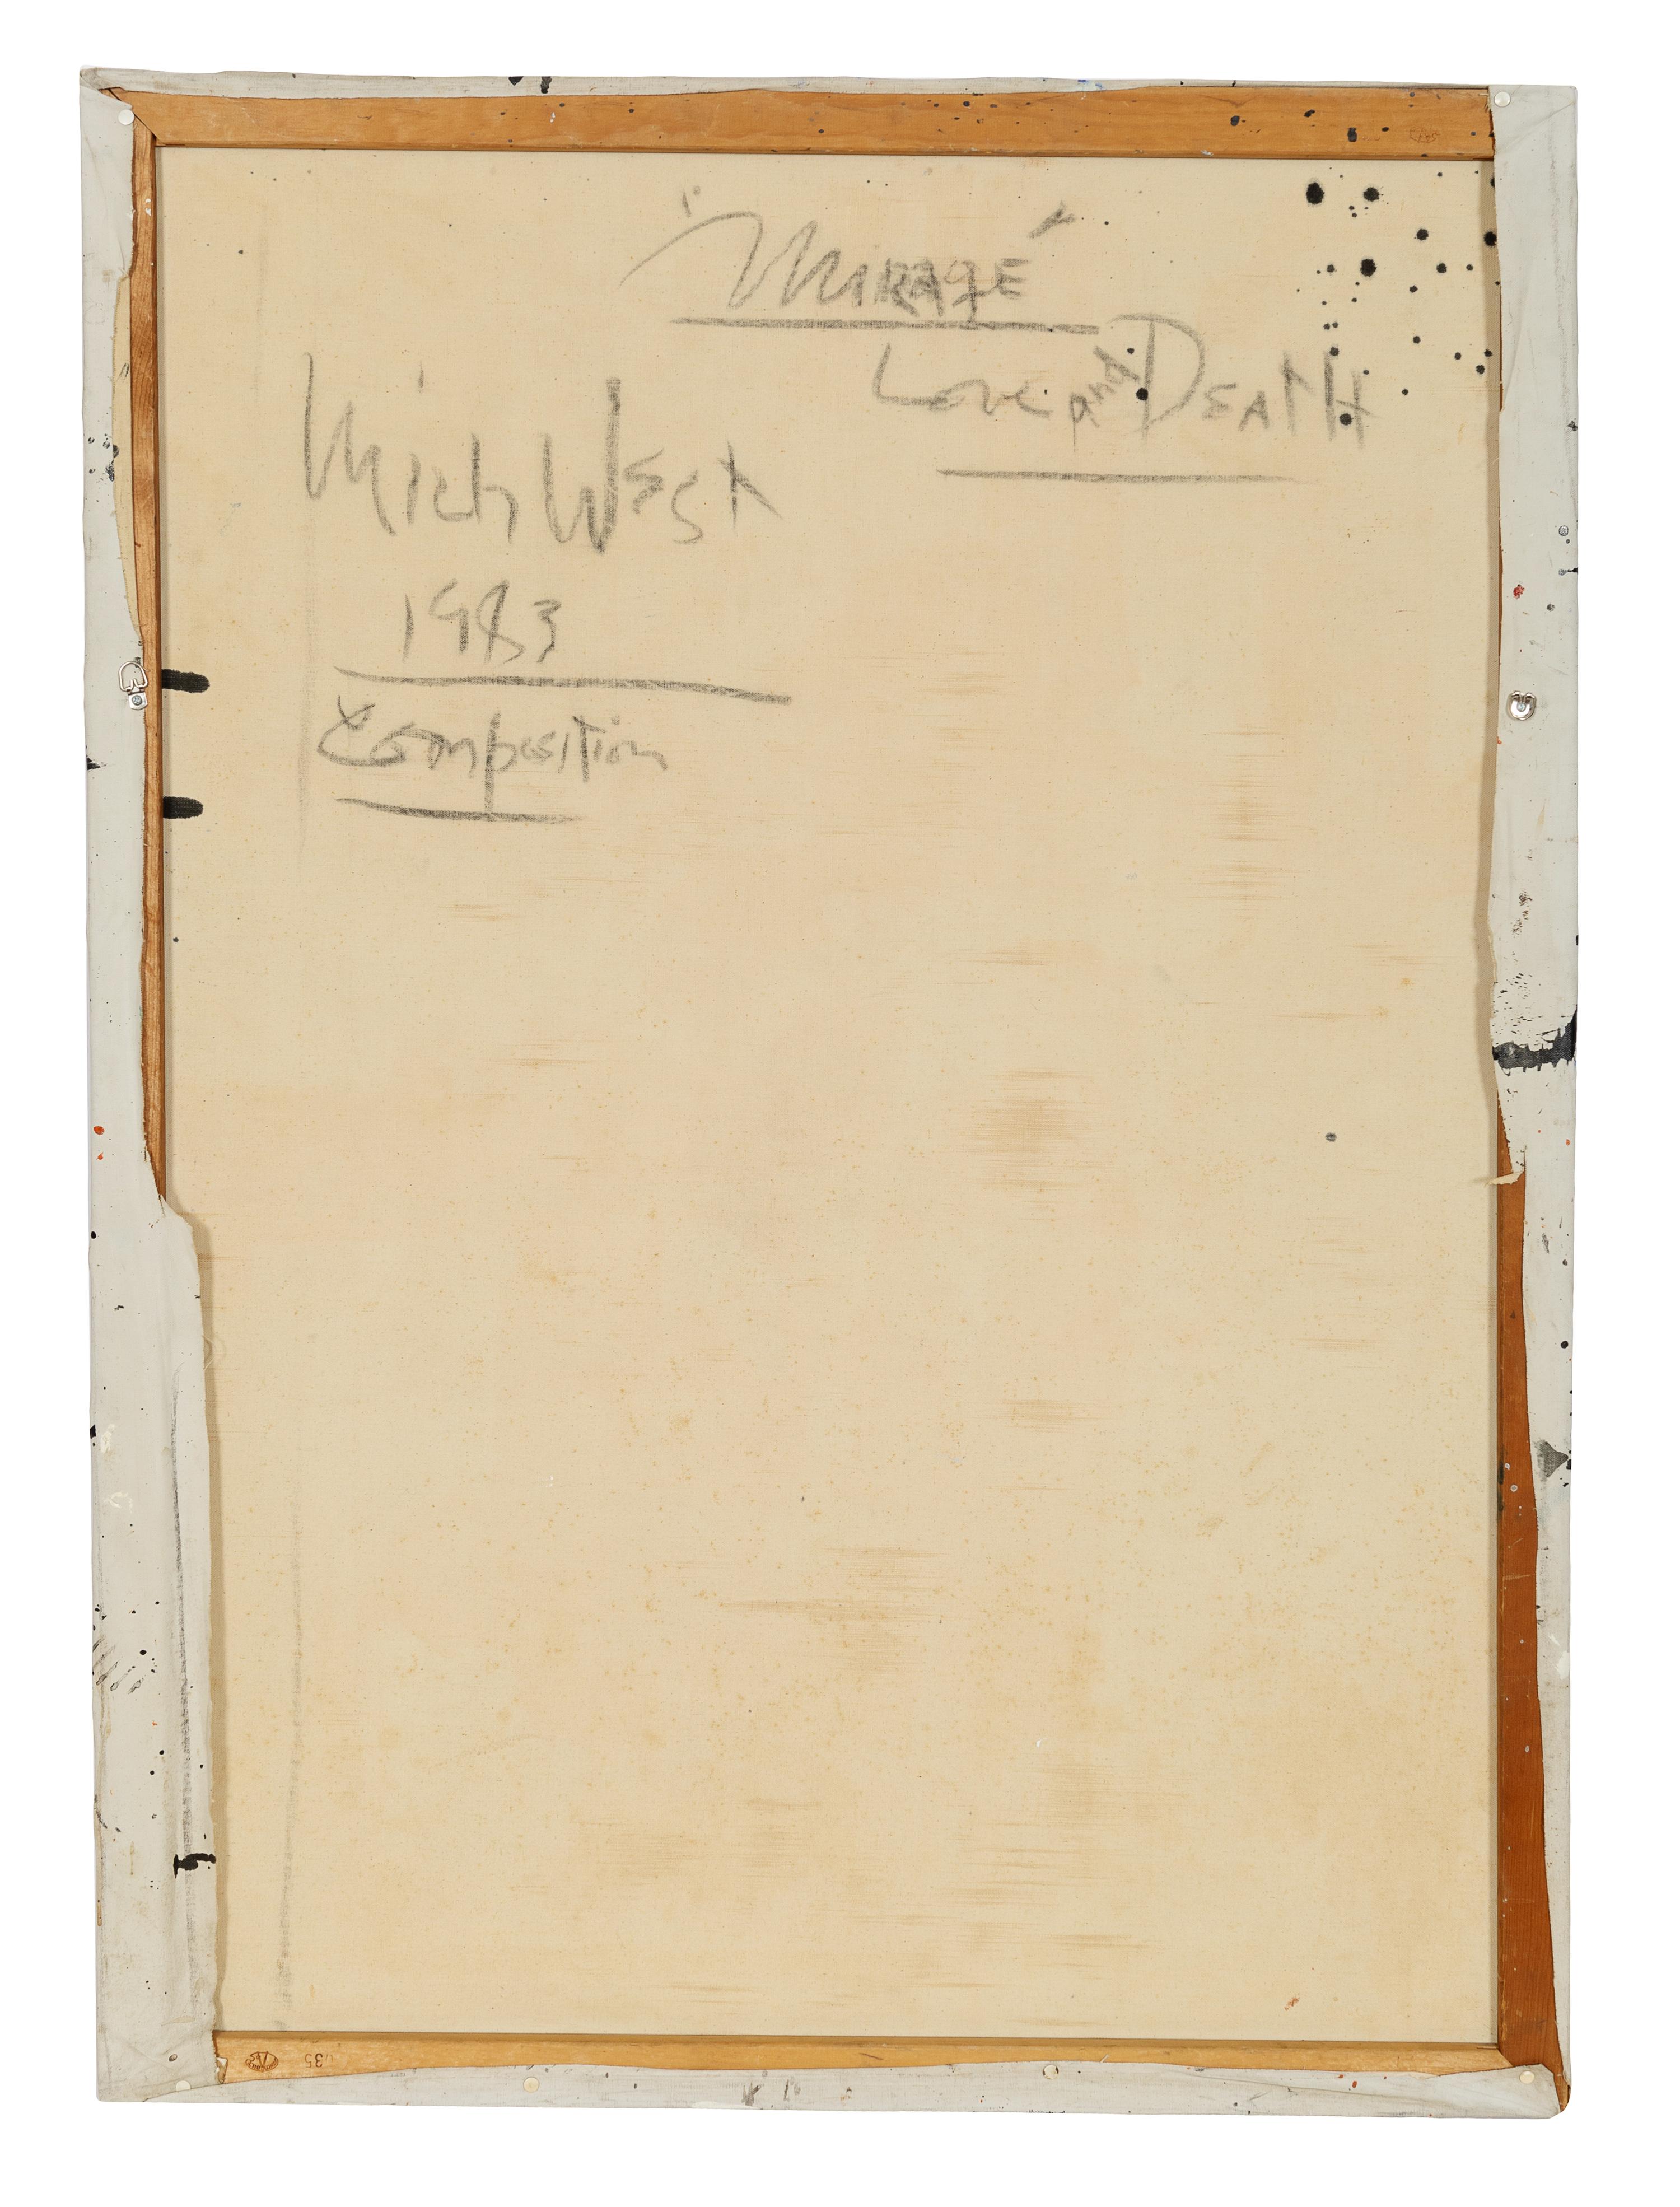 "MIRAGE"
Love and DEATH
Mich WEST
1983
Composition
35